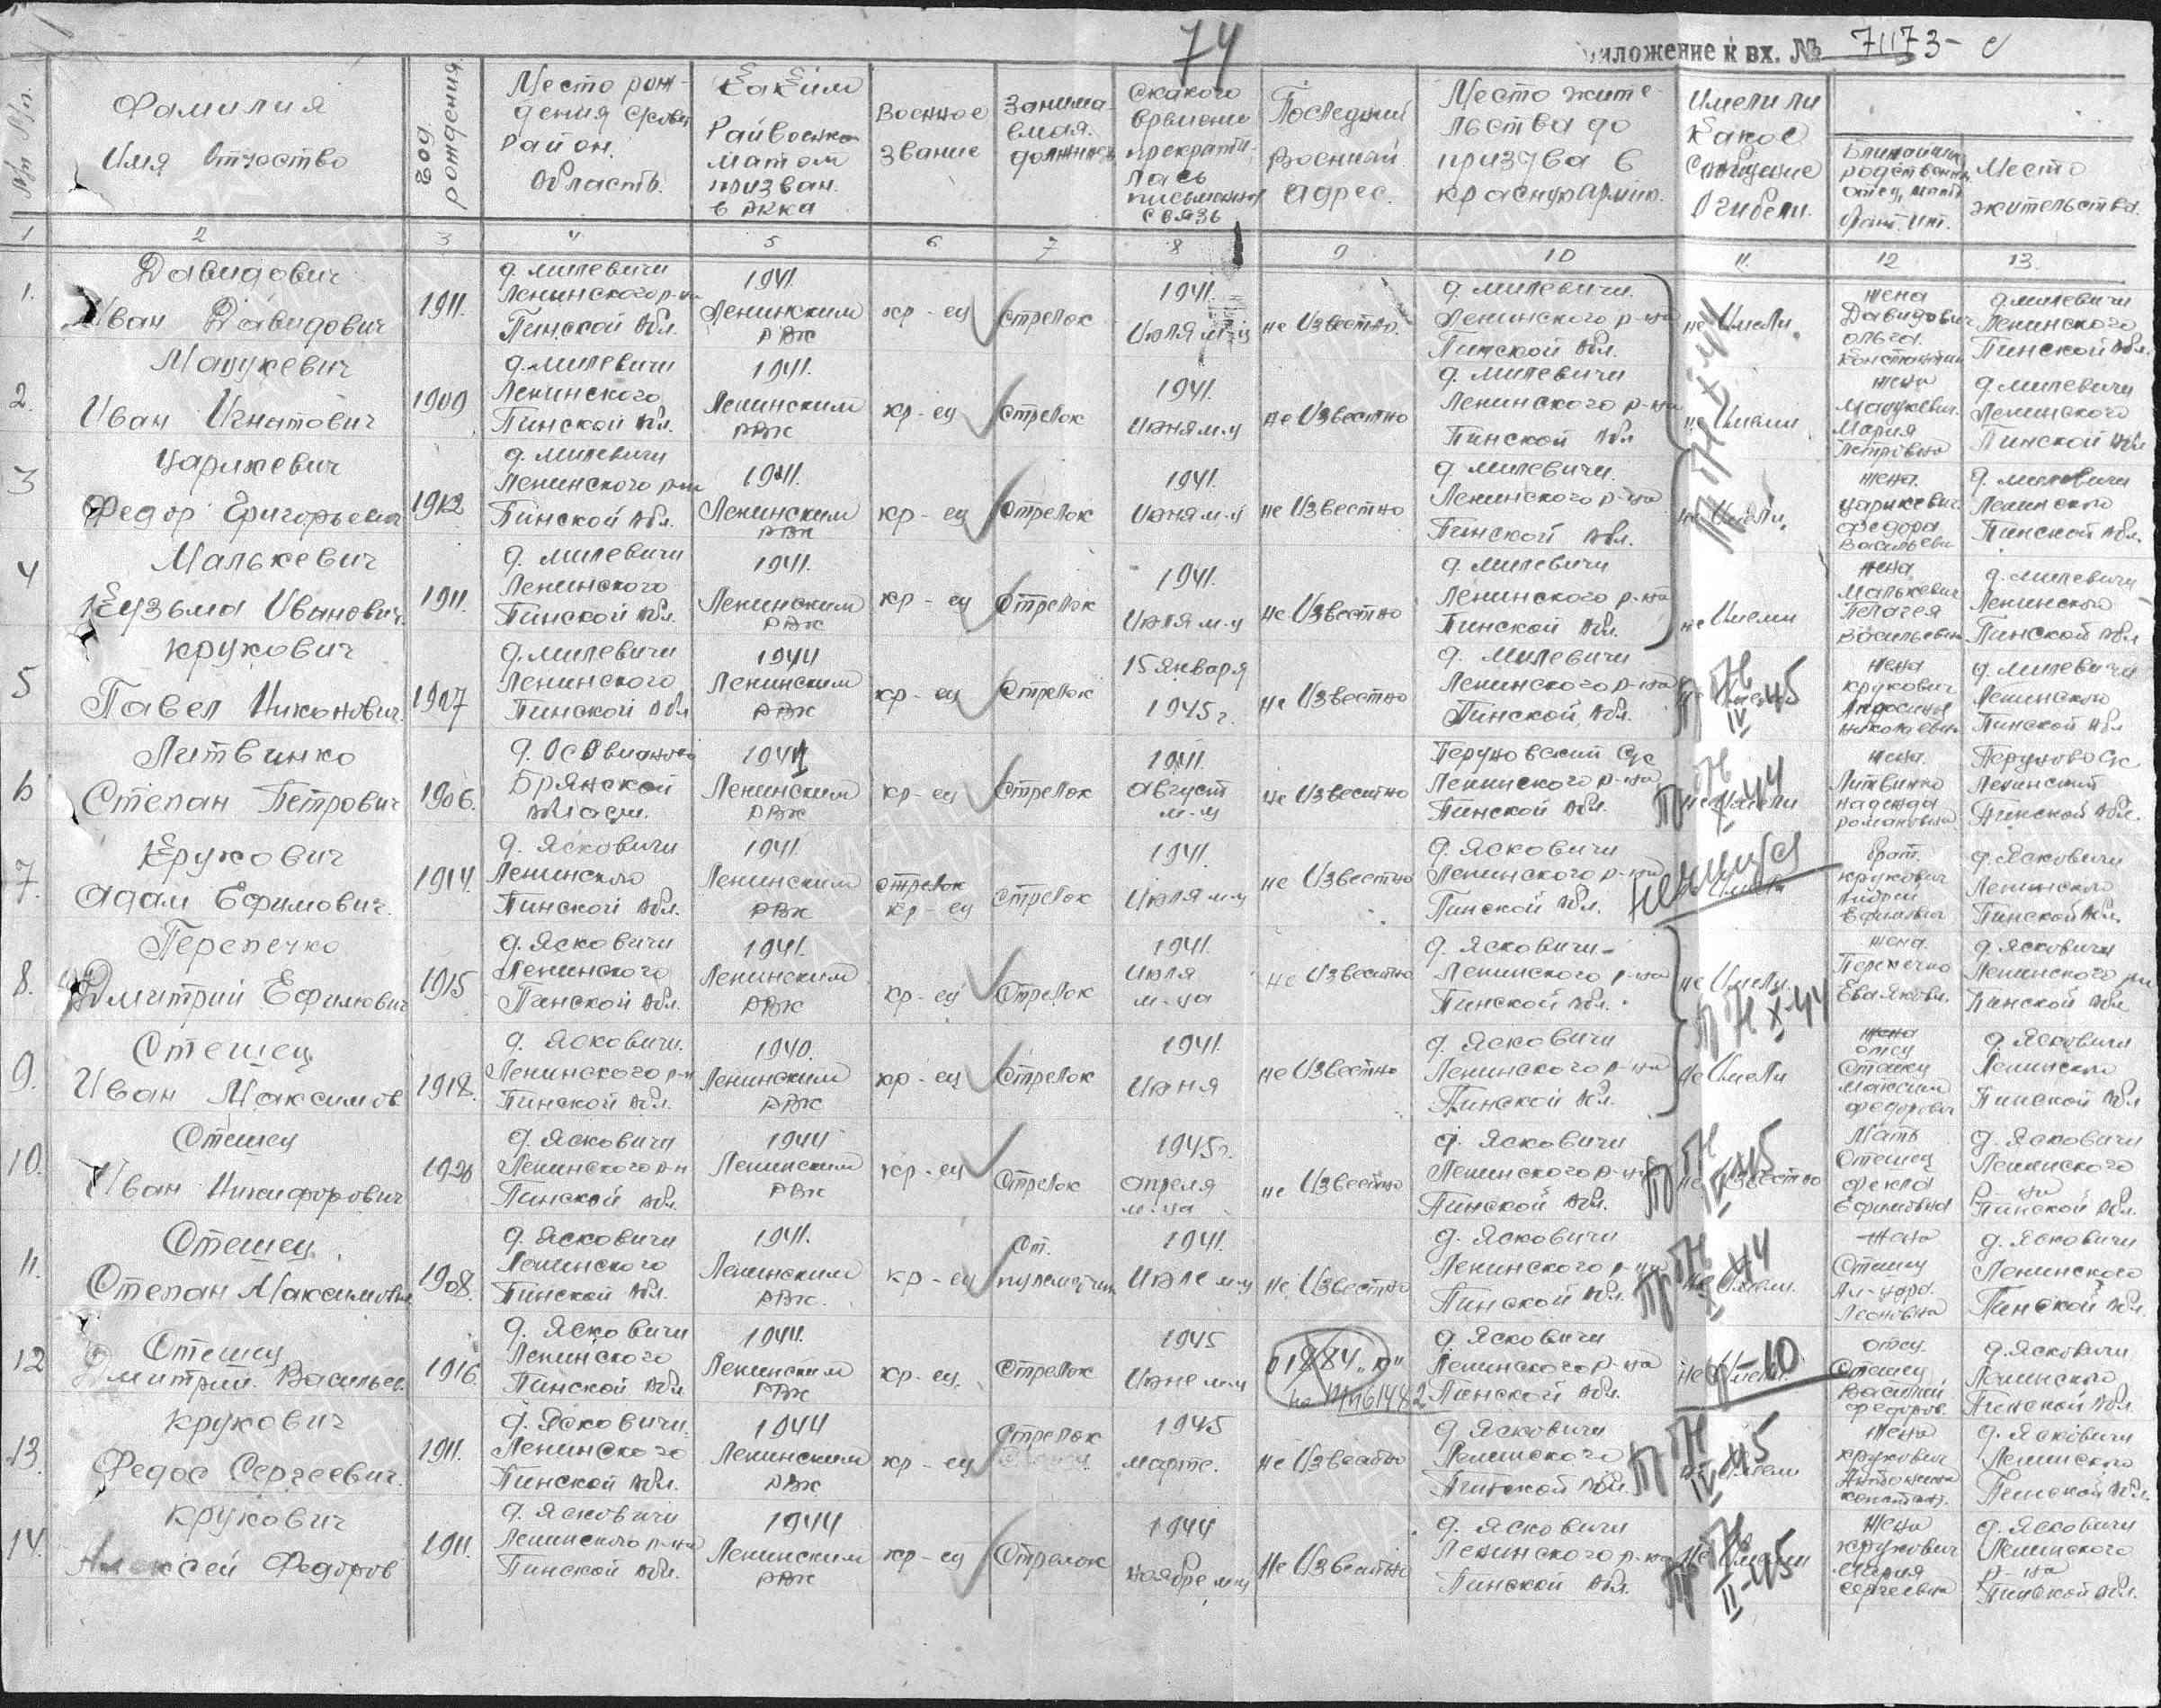 74
иложение к вх. № 71173-с
№№ п/п.
Фамилия
Имя Отчество
Год рождения
Место рож-
дения с/совет
Район.
Область.
Каким
Райвоенко
матом
призван.
в РККА
Военное
звание
Занима-
емая.
должность
С какого
времени
прекрати-
лась
письменная
связь
Последний
Военный
адрес.
Место жите-
льства до
призыва в
красную армию.
Имели ли
какое
сообщение
о гибели.
Ближайшие
родственники
отец, мать
Место
жительства.
1 2 3 4 5 6 7 8 9 10 11. 12 13.
1.
Давидович
Иван Давидович
1911.
д. Милевичи
Ленинского р-на
Пинской обл.
1941.
Ленинским
РВК
кр-ец
стрелок
1941.
Июля м-ц
не Известно.
д. Милевичи.
Ленинского р-на
Пинской обл.
не Имели.
жена
Давидович
Ольга.
Константин
д Милевичи
Ленинского
Пинской обл.
2.
Мацукевич
Иван Игнатович
1909
д. Милевичи
Ленинского
Пинской обл.
1941.
Ленинским
РВК
кр-ец
стрелок
1941.
Июня м-ц
не Известно
д. Милевичи
Ленинского р-на
Пинской обл
не Имели
жена
Мацукевич.
Мария
Петровна
д Милевичи
Ленинского
Пинской обл
ПН X-44
3
Царикевич
Федор Григорьевич
1912
д. Милевичи
Ленинского р-на
Пинской обл.
1941.
Ленинским
РВК
кр-ец
Стрелок
1941.
Июня м-ц
не Известно
д. Милевичи.
Ленинского р-на
Пинской обл.
не Имели.
жена.
Царикевич
Федора
Васильевн
д. Милевичи
Ленинского
Пинской обл.
4
Малькевич
Кузьма Иванович.
1911.
д. Милевичи
Ленинского
Пинской обл.
1941.
Ленинским
РВК
кр-ец
Стрелок
1941.
Июля м-ц
не Известно
д. Милевичи
Ленинского р-на
Пинской обл.
не Имели
жена
Малькевич
Пелагея
Васильевн
д. Милевичи
Ленинского
Пинской обл
5
Крукович
Павел Никонович.
1907
д. Милевичи
Ленинского
Пинской обл
1944
Ленинским
РВК
кр-ец
Стрелок
15 Января
1945 г.
не Известно
д. Милевичи
Ленинского р-на
Пинской обл.
ПН IV 45
жена
Крукович
Николаевн.
д Милевичи
Ленинского
Пинской обл
6
Литвинко
Степан Петрович
1906.
Брянской
области.
1941
Ленинским
РВК
кр-ец
Стрелок
1941.
август
м-ц
не Известно
Перуновский с/с
Ленинского р-на
Пинской обл.
не Имели
ПН X-44
жена.
Литвинко
Надежда
Романовна.
Перуново с/с
Ленинский
Пинской обл.
7.
Крукович
Адам Ефимович.
1914.
д. Ясковичи
Ленинского
Пинской обл.
1941.
Ленинским
РВК
стрелок
кр-ец
стрелок
1941.
Июля м-ц
не Известно
д. Ясковичи
Ленинского р-на
Пинской обл.
брат.
Крукович
Андрей
Ефимович
д. Ясковичи
Ленинского
Пинской обл.
8.
Перепечко
Дмитрий Ефимович
1915
д. Ясковичи
Ленинского
Пинской обл.
1941.
Ленинским
РВК
кр-ец
Стрелок
1941.
Июля
м-ца
не Известно
д. Ясковичи-
Ленинского р-на
Пинской обл.
не Имели.
жена.
Перепечко
Ева Яковл.
д. Ясковичи
Ленинского рн
Пинской обл
ПН X-44
9.
Стешец
Иван Максимов
1918.
д. Ясковичи.
Ленинского р-н
Пинской обл.
1940.
Ленинским
РВК
кр-ец
Стрелок
1941.
Июня
не Известно
д. Ясковичи
Ленинского р-на
Пинской обл.
не Имели
жена
отец
Стешец
Максим
Федорович
д. Ясковичи
Ленинского
Пинской обл
10.
Стешец
Иван Никифорович
1920
д. Ясковичи
Ленинского р-н
Пинской обл.
1944
Ленинским
РВК
кр-ец
Стрелок
1945г.
апреля
м-ца
не Известно
д. Ясковичи
Ленинского р-на
Пинской обл.
не Известно
Мать
Стешец
Фекла
Ефимовна
д. Ясковичи
Ленинского
р-на
Пинской обл.
11.
Стешец.
Степан Максимович
1908.
д. Ясковичи
Ленинского
Пинской обл.
1941.
Ленинским
РВК.
кр-ец
Ст.
пулеметчик
1941.
Июле м-ц
не Известно
д. Ясковичи
Ленинского р-на
Пинской обл.
не Имели.
ПН X 44
жена
Стешец
Леоновна
д. Ясковичи
Ленинского
Пинской обл.
12
Стешец
Дмитрий. Васильев.
1916.
д. Ясковичи
Ленинского
Пинской обл
1944.
Ленинским
РВК
кр-ец.
Стрелок
1945
Июне м-ц
на ПП 61482
д. Ясковичи
Ленинского р-на
Пинской обл.
отец.
Стешец
Василий
Федоров.
д. Ясковичи
Ленинского
Пинской обл.
13.
Крукович
Федос Сергеевич.
1911.
д. Ясковичи.
Ленинского
Пинской обл.
1944
Ленинским
РВК
кр-ец
Стрелок
1945
марте.
не Известно
д Ясковичи
Ленинского
Пинской обл.
ПН IV 45
жена
Крукович
Антонина
Констант.
д. Ясковичи
Ленинского
Пинской обл.
14.
Крукович
Алексей Федоров
1911.
д. Ясковичи
Ленинского р-на
Пинской обл.
1944
Ленинским
РВК
кр-ец
Стрелок
1944
ноябре м-ц
Не Известно
д. Ясковичи
Ленинского р-на
Пинской обл.
Не Имели
ПН II-45
жена
Крукович
Мария
Сергеевна
д. Ясковичи
Ленинского
р-на
Пинской обл.